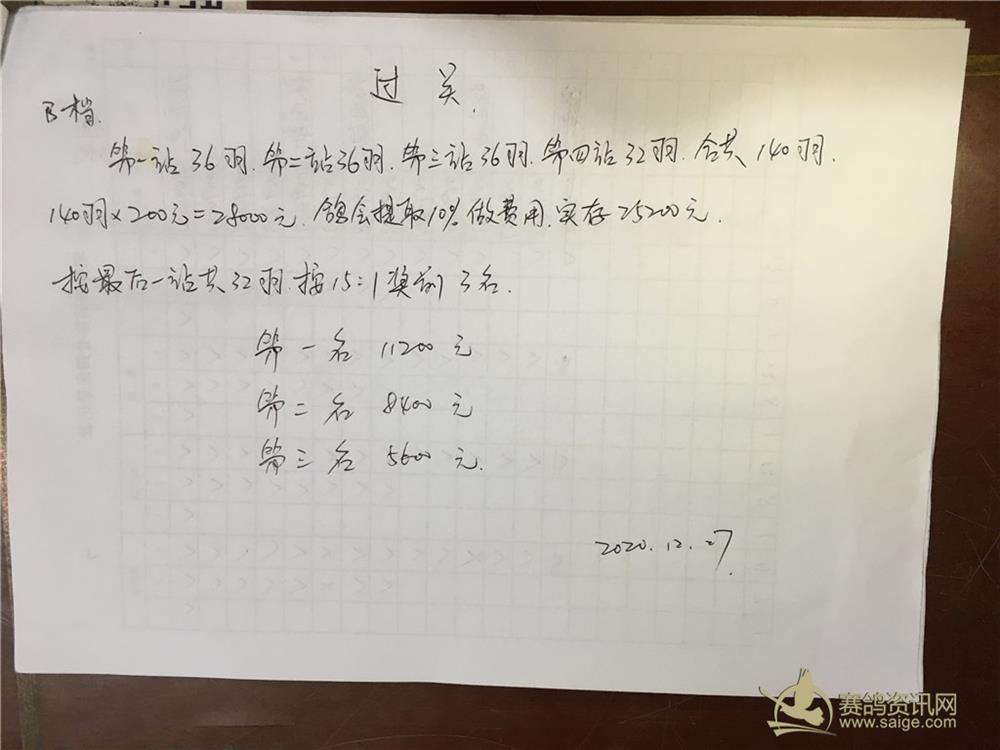 过关.
B档.
第一站36羽.第二站36羽.第三站36羽.第四站32羽.合共140羽.
140羽×200元=28000元.鸽会提取10%做费用.实存25200元.
按最后一站共32羽.按15:1奖前3名.
第一名 11200元
第二名 8400元
第三名 5600元.
2020.12.27.
赛鸽资讯网
www.saige.com